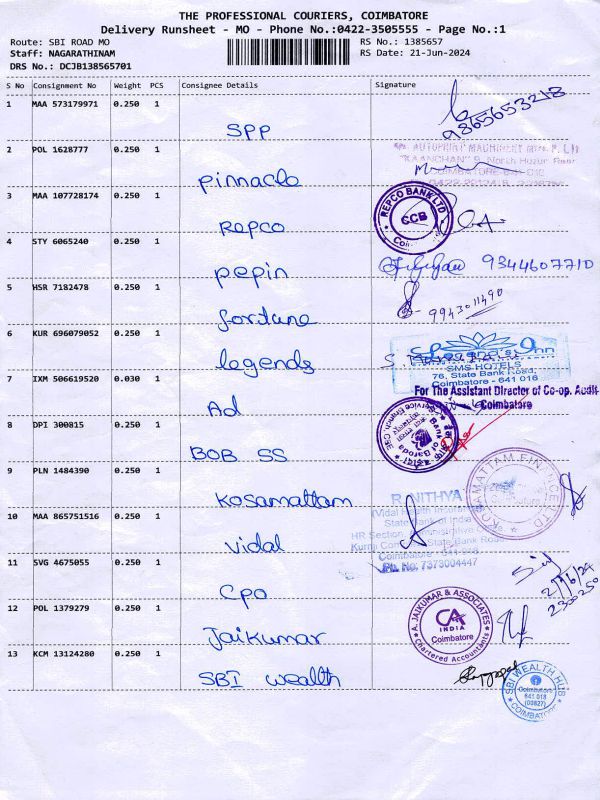 THE PROFESSIONAL COURIERS, COIMBATORE
Delivery Runsheet - MO - Phone No.:0422-3505555 - Page No.:1
Route: SBI ROAD MO RS No.: 1385657
Staff: NAGARATHINAM RS Date: 21-Jun-2024
DRS No.: DCJB138565701
S No Consignment No Weight PCS Consignee Details Signature
1 MAA 573179971 0.250 1
9865653218
SPP
2 POL 1628777 0.250 1
"KAANCHAN" 9, North Huzur Road
COIMBATORE
Pinnacle
3 MAA 107728174 0.250 1
REPCO BANK LTD
CCB
Repco
4 STY 6065240 0.250 1
pepin 9344607710
5 HSR 7182478 0.250 1
9943011490
fortune
6 KUR 696079052 0.250 1
legends
SMS HOTELS
76, State Bank Road,
Coimbatore - 641 018
7 IXM 506619520 0.030 1
For The Assistant Director of Co-op. Audit
Coimbatore
Ad
8 DPI 300815 0.250 1
Bank of Baroda
BOB SS
9 PLN 1484390 0.250 1
KOSAMATTAM FINANCE LTD
Coimbatore
Kosamattam
R. NITHYA
State Bank of India
10 MAA 865751516 0.250 1
Vidal
Coimbatore - 641 018
Ph. No: 7373004447
11 SVG 4675055 0.250 1
21/6/24
CPO
12 POL 1379279 0.250 1
A. JAIKUMAR & ASSOCIATES
CA
INDIA
Coimbatore
Chartered Accountants
Jaikumar
13 KCM 13124280 0.250 1
SBI wealth
SBI WEALTH HUB
Coimbatore
641 018
(00827)
COIMBATORE